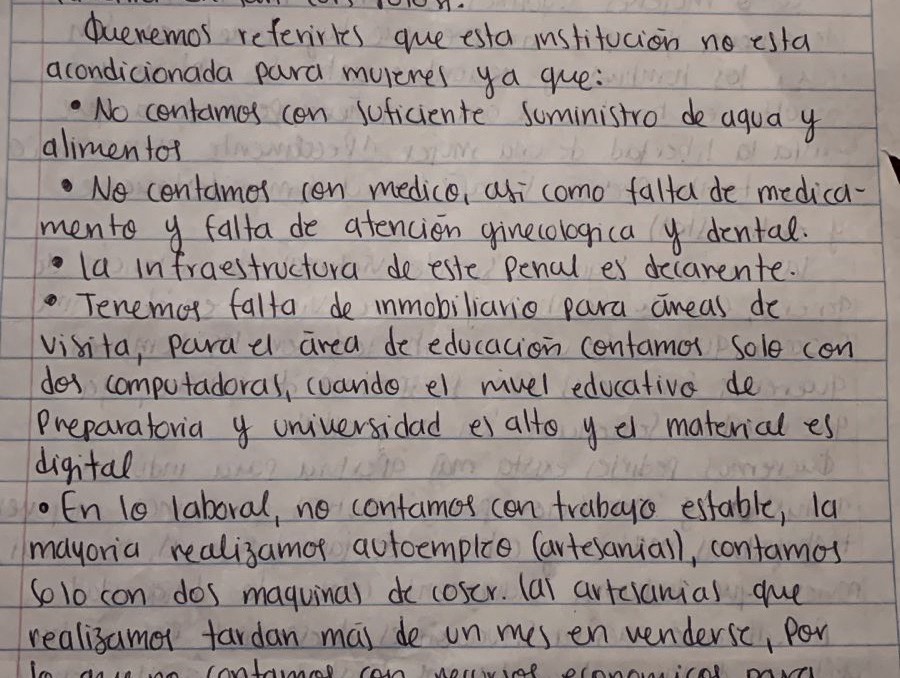 Queremos referirles que esta institución no esta
acondicionada para mujeres ya que:
• No contamos con suficiente suministro de agua y
alimentos
• No contamos con medico, así como falta de medica-
mento y falta de atención ginecologica y dental.
• la infraestructura de este penal es decarente.
• Tenemos falta de inmobiliario para áreas de
visita, para el área de educación contamos solo con
dos computadoras, cuando el nivel educativo de
Preparatoria y universidad es alto y el material es
digital
• En lo laboral, no contamos con trabajo estable, la
mayoria realizamos autoempleo (artesanias), contamos
solo con dos maquinas de coser. las artesanias que
realizamos tardan más de un mes en venderse, por
contamos con recursos economicos para